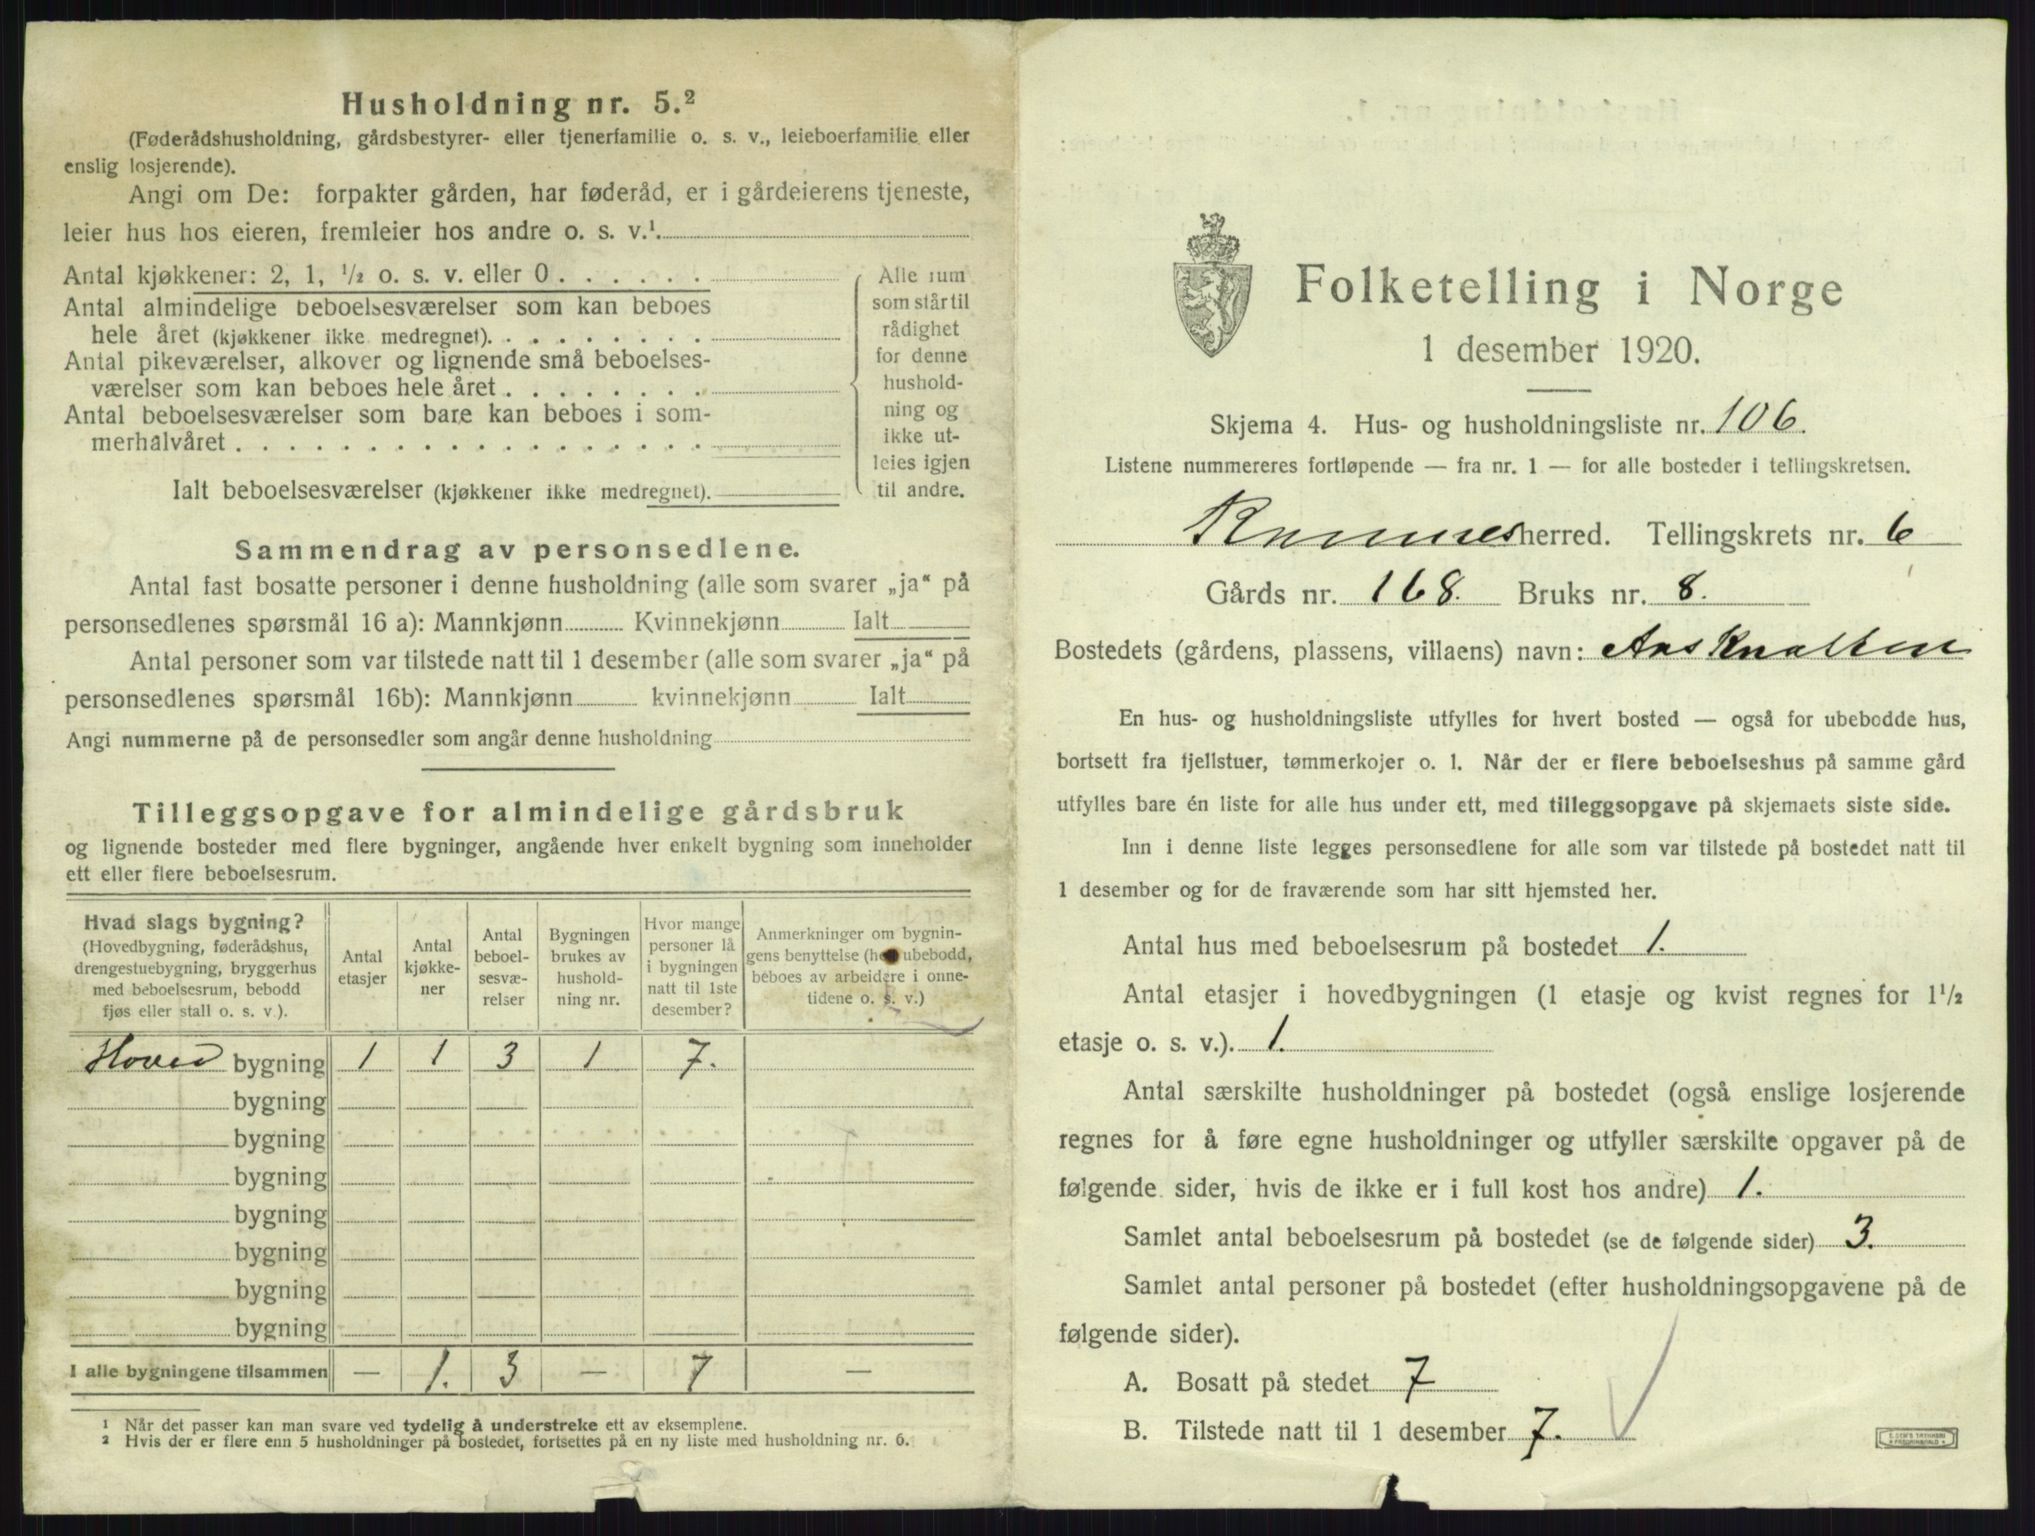 Husholdning nr. 5.²
(Føderådshusholdning, gårdsbestyrer- eller tjenerfamilie o. s. v., leieboerfamilie eller
enslig losjerende).
Angi om De: forpakter gården, har føderåd, er i gårdeierens tjeneste,
leier hus hos eieren, fremleier hos andre o. s. v.¹
Antal kjøkkener: 2, 1, ½ o. s. v. eller 0 . . . . . .
Antal almindelige beboelsesværelser som kan beboes
hele året (kjøkkener ikke medregnet). . . . . . . . .
Antal pikeværelser, alkover og lignende små beboelses-
værelser som kan beboes hele året . . . . . . . .
Antal beboelsesværelser som bare kan beboes i som-
merhalvåret . . . . . . . . . . . . . . . . . .
Ialt beboelsesværelser (kjøkkener ikke medregnet).
Alle rum
som står til
rådighet
for denne
hushold-
ning og
ikke ut-
leies igjen
til andre.
Sammendrag av personsedlene.
Antal fast bosatte personer i denne husholdning (alle som svarer „ja“ på
personsedlenes spørsmål 16 a): Mannkjønn Kvinnekjønn Ialt
Antal personer som var tilstede natt til 1 desember (alle som svarer „ja“ på
personsedlenes spørsmål 16b): Mannkjønn kvinnekjønn Ialt
Angi nummerne på de personsedler som angår denne husholdning
Tilleggsopgave for almindelige gårdsbruk
og lignende bosteder med flere bygninger, angående hver enkelt bygning som inneholder
ett eller flere beboelsesrum.
Hvad slags bygning?
(Hovedbygning, føderådshus,
drengestuebygning, bryggerhus
med beboelsesrum, bebodd
fjøs eller stall o. s. v.).
Antal
etasjer
Antal
kjøkke-
ner
Antal
beboel-
sesvæ-
relser
Bygningen
brukes av
hushold-
ning nr.
Hvor mange
personer lå
i bygningen
natt til 1ste
desember?
Anmerkninger om bygnin-
gens benyttelse ubebodd,
beboes av arbeidere i onne-
tidene o. s. v.)
Hoved bygning 1 1 3 1 7.
bygning
bygning
bygning
bygning
bygning
bygning
bygning
I alle bygningene tilsammen — 1. 3 — 7 —
¹ Når det passer kan man svare ved tydelig å understreke ett av eksemplene.
² Hvis der er flere enn 5 husholdninger på bostedet, fortsettes på en ny liste med husholdning nr. 6.
Folketelling i Norge
1 desember 1920.
Skjema 4. Hus- og husholdningsliste nr. 106.
Listene nummereres fortløpende — fra nr. 1 — for alle bosteder i tellingskretsen.
herred. Tellingskrets nr. 6
Gårds nr. 168. Bruks nr. 8.
Bostedets (gårdens, plassens, villaens) navn:
En hus- og husholdningsliste utfylles for hvert bosted — også for ubebodde hus,
bortsett fra fjellstuer, tømmerkojer o. l. Når der er flere beboelseshus på samme gård
utfylles bare én liste for alle hus under ett, med tilleggsopgave på skjemaets siste side.
Inn i denne liste legges personsedlene for alle som var tilstede på bostedet natt til
1 desember og for de fraværende som har sitt hjemsted her.
Antal hus med beboelsesrum på bostedet 1.
Antal etasjer i hovedbygningen (1 etasje og kvist regnes for 1½
etasje o. s. v.). 1.
Antal særskilte husholdninger på bostedet (også enslige losjerende
regnes for å føre egne husholdninger og utfyller særskilte opgaver på de
følgende sider, hvis de ikke er i full kost hos andre) 1.
Samlet antal beboelsesrum på bostedet (se de følgende sider) 3.
Samlet antal personer på bostedet (efter husholdningsopgavene på de
følgende sider).
A. Bosatt på stedet 7
B. Tilstede natt til 1 desember 7.